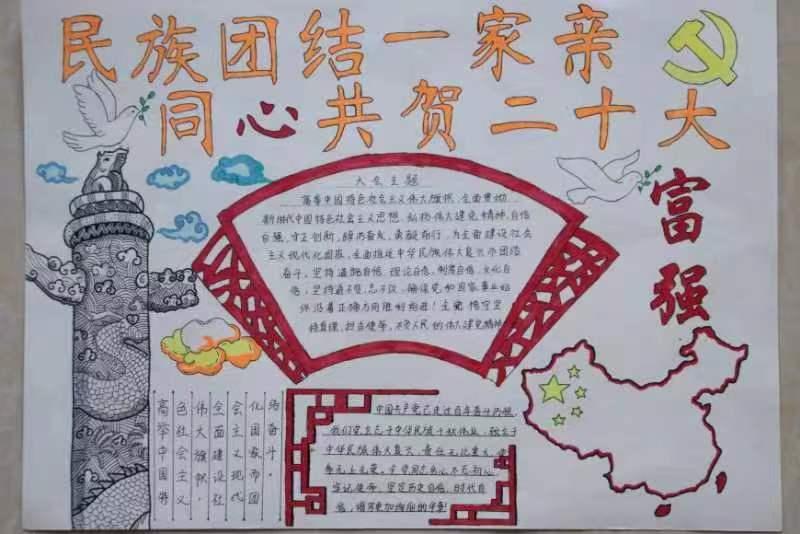 民族团结一家亲
同心共贺二十大
富强
大会主题
高举中国特色社会主义伟大旗帜，全面贯彻
新时代中国特色社会主义思想，弘扬伟大建党精神，自信
自强，守正创新，踔厉奋发，勇毅前行，为全面建设社会
主义现代化国家，全面推进中华民族伟大复兴而团结
奋斗，坚持道路自信，理论自信，制度自信，文化自
信，坚持
不忘，确保党和国家事业始
终沿着正确方向胜利前进！
坚
持真理，担当使命，不负人民的伟大建党精神
高举中国特
色社会主义
伟大旗帜，
全面建设社
会主义现代
化国家而团
结奋斗。
中国共产党已走过百年奋斗历程
我们党立志于中华民族千秋伟业，致力于
中华民族伟大复兴，责任无比重大，使
命无上光荣，全党同志务必不忘初心
牢记使命，坚定历史自信，时代自
信，谱写更加绚丽的华章